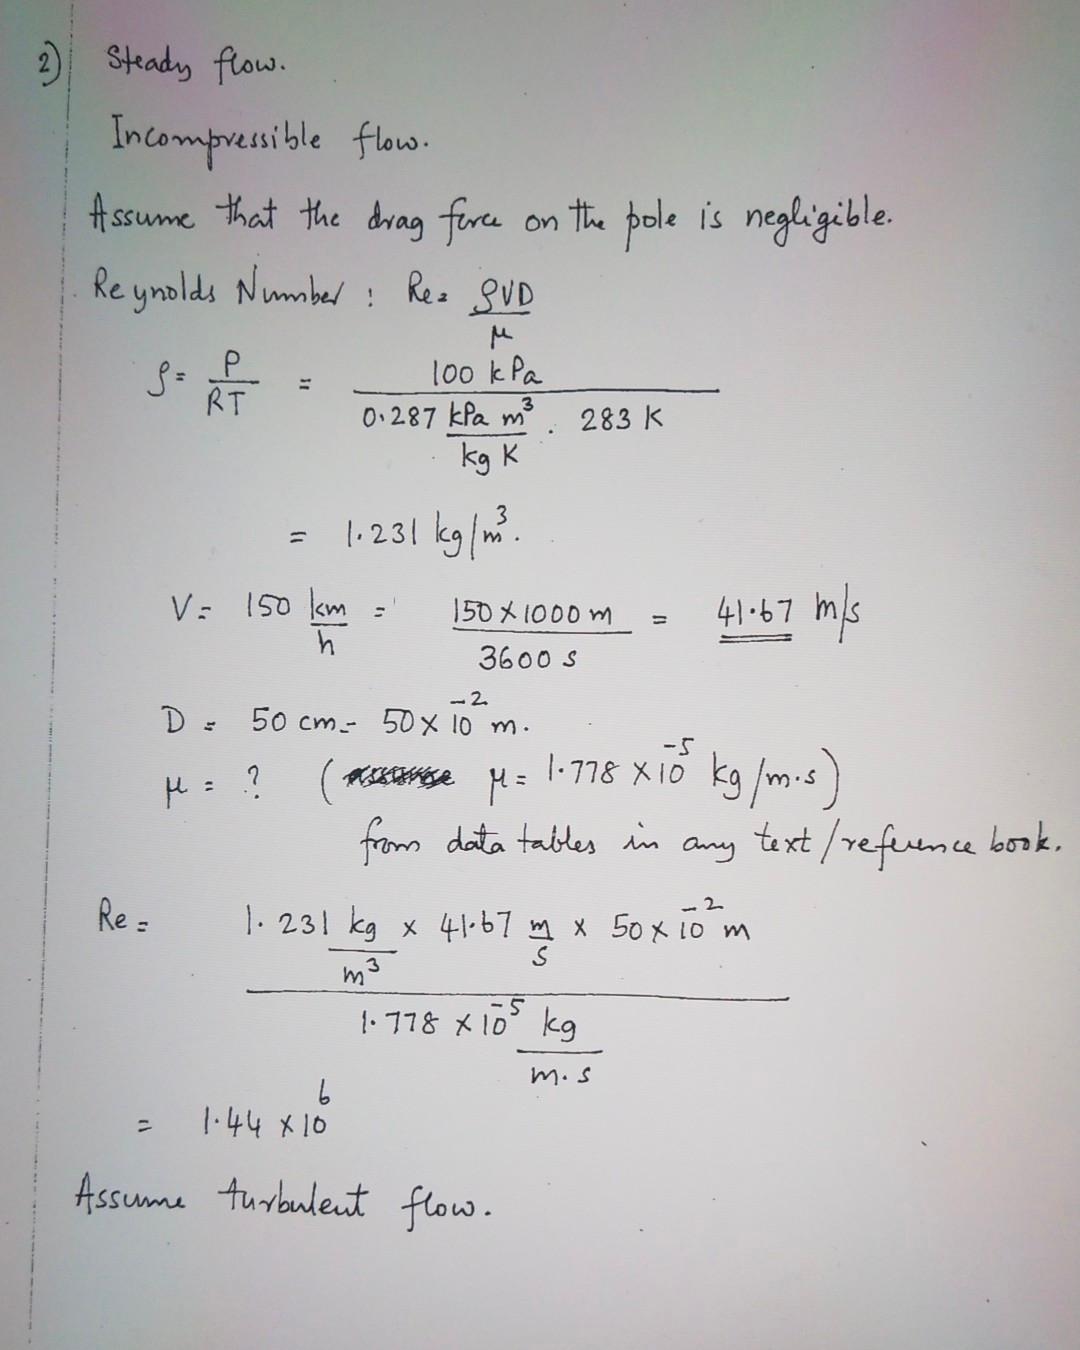 2) Steady flow.
Incompressible flow.
Assume that the drag force on the pole is negligible.
Reynolds Number : Re = ρVD / μ
ρ = P / RT = 100 kPa / 0.287 kPa m³ / kg K . 283 K
= 1.231 kg/m³.
V = 150 km / h = 150 × 1000 m / 3600 s = 41.67 m/s
D = 50 cm = 50 × 10⁻² m.
μ = ? ( μ = 1.778 × 10⁻⁵ kg/m.s)
from data tables in any text/reference book.
Re = 1.231 kg / m³ × 41.67 m / s × 50 × 10⁻² m / 1.778 × 10⁻⁵ kg / m.s
= 1.44 × 10⁶
Assume turbulent flow.